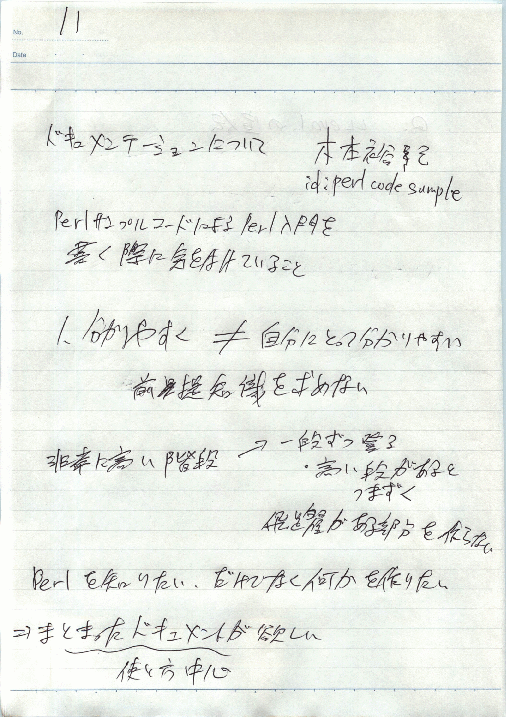 No. 11
Date
ドキュメンテーションについて
木本裕紀
id:perlcodesample
Perlサンプルコードによる Perl入門を
書く際に気を付けていること
1、分かりやすく ≠ 自分にとって分かりやすい
前提知識を求めない
非常に高い階段 → 一段ずつ登る
・高い段があると
つまずく
飛躍がある部分を作らない
Perlを知りたい、だけでなく何かを作りたい
⇒まとまったドキュメントが欲しい
使い方中心